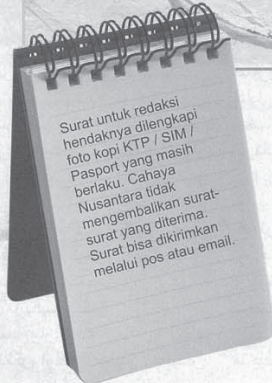 Surat untuk redaksi
hendaknya dilengkapi
foto kopi KTP / SIM /
Pasport yang masih
berlaku. Cahaya
Nusantara tidak
mengembalikan surat-
surat yang diterima.
Surat bisa dikirimkan
melalui pos atau email.